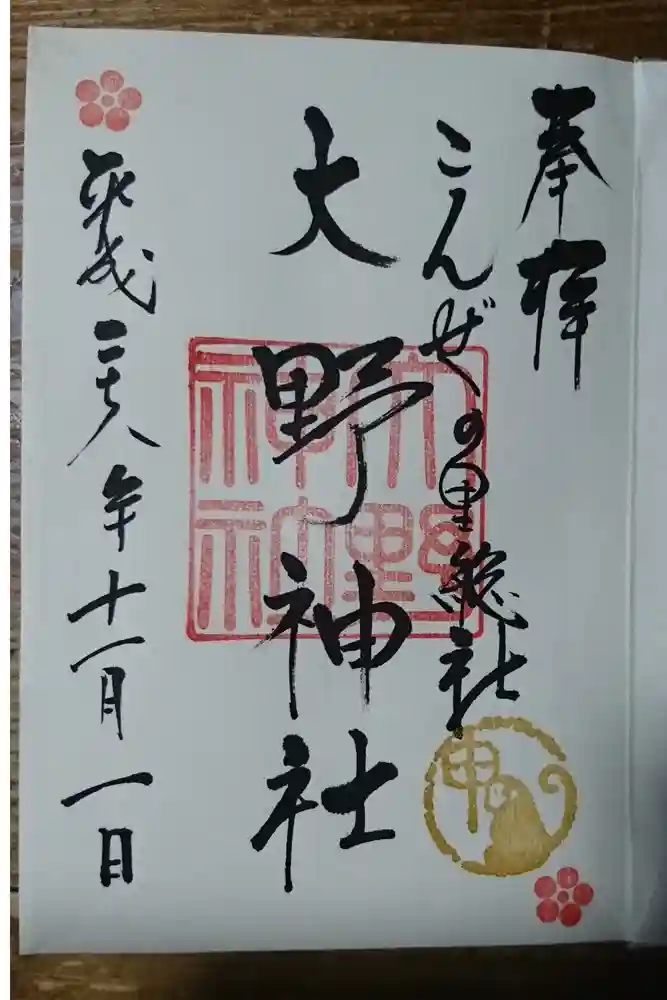 奉拝
こんぜの里総社
大野神社
大野
神社
申
平成二十八年十一月一日